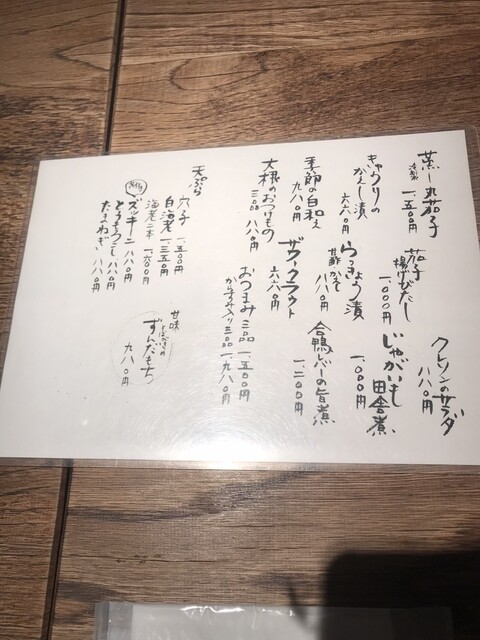 蒸し丸茄子
冷製 一、五〇〇円
クレソンのサラダ
八八〇円
茄子
揚げびたし
一、〇〇〇円
じゃがいも
田舎煮
一、〇〇〇円
きゅうりの
からし漬
六六〇円
らっきょう漬
甘酢
八八〇円
合鴨レバーの旨煮
一、二〇〇円
季節の白和え
九八〇円
ザワークラウト
六六〇円
大根のおつけもの
三品 八八〇円
おつまみ三品 一、五〇〇円
からすみ入り三品 一、九八〇円
天ぷら
穴子 一、五〇〇円
白海老 一、三五〇円
海老二本 一、六〇〇円
ズッキーニ 八八〇円
とうもろこし 八八〇円
たまねぎ 八八〇円
甘味
ずんだもち
九八〇円